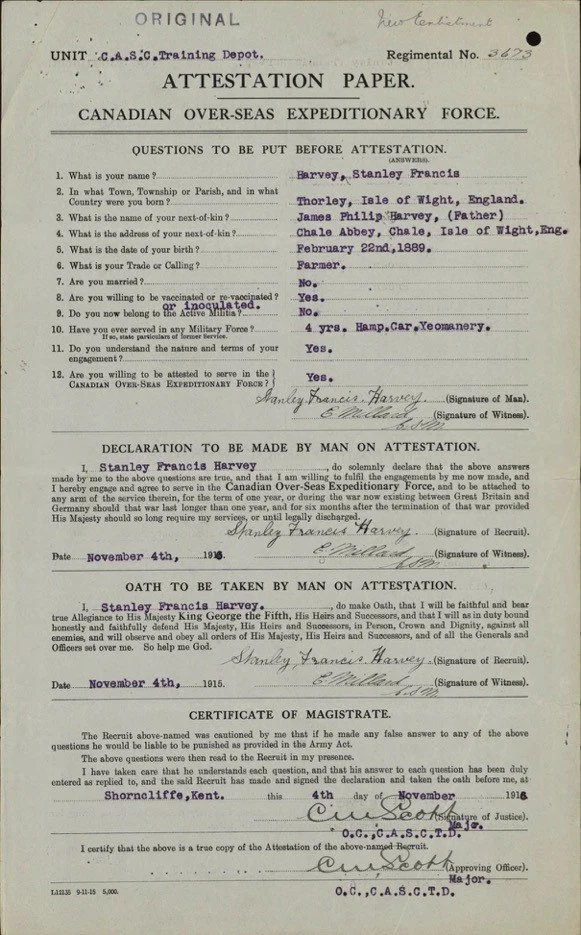 ORIGINAL
New Enlistment
UNIT C.A.S.C. Training Depot. Regimental No. 3673
ATTESTATION PAPER.
CANADIAN OVER-SEAS EXPEDITIONARY FORCE.
QUESTIONS TO BE PUT BEFORE ATTESTATION.
(ANSWERS)
1. What is your name? Harvey, Stanley Francis
2. In what Town, Township or Parish, and in what
Country were you born? Thorley, Isle of Wight, England.
3. What is the name of your next-of-kin? James Philip Harvey, (Father)
4. What is the address of your next-of-kin? Chale Abbey, Chale, Isle of Wight, Eng.
5. What is the date of your birth? February 22nd, 1889.
6. What is your Trade or Calling? Farmer.
7. Are you married? No.
8. Are you willing to be vaccinated or re-vaccinated? Yes.
or inoculated.
9. Do you now belong to the Active Militia? No.
10. Have you ever served in any Military Force? 4 yrs. Hamp.Car.Yeomanery.
If so, state particulars of former Service.
11. Do you understand the nature and terms of your
engagement? Yes.
12. Are you willing to be attested to serve in the
CANADIAN OVER-SEAS EXPEDITIONARY FORCE? Yes.
Stanley Francis Harvey. (Signature of Man).
E Millard (Signature of Witness).
C.S.M.
DECLARATION TO BE MADE BY MAN ON ATTESTATION.
I, Stanley Francis Harvey, do solemnly declare that the above answers
made by me to the above questions are true, and that I am willing to fulfil the engagements by me now made, and
I hereby engage and agree to serve in the Canadian Over-Seas Expeditionary Force, and to be attached to
any arm of the service therein, for the term of one year, or during the war now existing between Great Britain and
Germany should that war last longer than one year, and for six months after the termination of that war provided
His Majesty should so long require my services, or until legally discharged.
Stanley Francis Harvey (Signature of Recruit).
Date November 4th, 1915. E Millard (Signature of Witness).
C.S.M.
OATH TO BE TAKEN BY MAN ON ATTESTATION.
I, Stanley Francis Harvey., do make Oath, that I will be faithful and bear
true Allegiance to His Majesty King George the Fifth, His Heirs and Successors, and that I will as in duty bound
honestly and faithfully defend His Majesty, His Heirs and Successors, in Person, Crown and Dignity, against all
enemies, and will observe and obey all orders of His Majesty, His Heirs and Successors, and of all the Generals and
Officers set over me. So help me God.
Stanley Francis Harvey. (Signature of Recruit).
Date November 4th, 1915. E Millard (Signature of Witness).
C.S.M.
CERTIFICATE OF MAGISTRATE.
The Recruit above-named was cautioned by me that if he made any false answer to any of the above
questions he would be liable to be punished as provided in the Army Act.
The above questions were then read to the Recruit in my presence.
I have taken care that he understands each question, and that his answer to each question has been duly
entered as replied to, and the said Recruit has made and signed the declaration and taken the oath before me, at
Shorncliffe, Kent. this 4th day of November 191
C W Scott (Signature of Justice).
Major.
O.C., C.A.S.C.T.D.
I certify that the above is a true copy of the Attestation of the above-named Recruit.
C W Scott (Approving Officer).
Major.
O.C., C.A.S.C.T.D.
L12135 9-11-15 5,000.